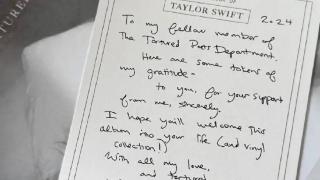 TAYLOR SWIFT
2024
To my fellow member of
The Tortured Poets Department.
Here are some tokens of
my gratitude -
to you, for your support
from me, sincerely.
I hope you'll welcome this
album into your life (and vinyl
collection!)
With all my love,
and tortured